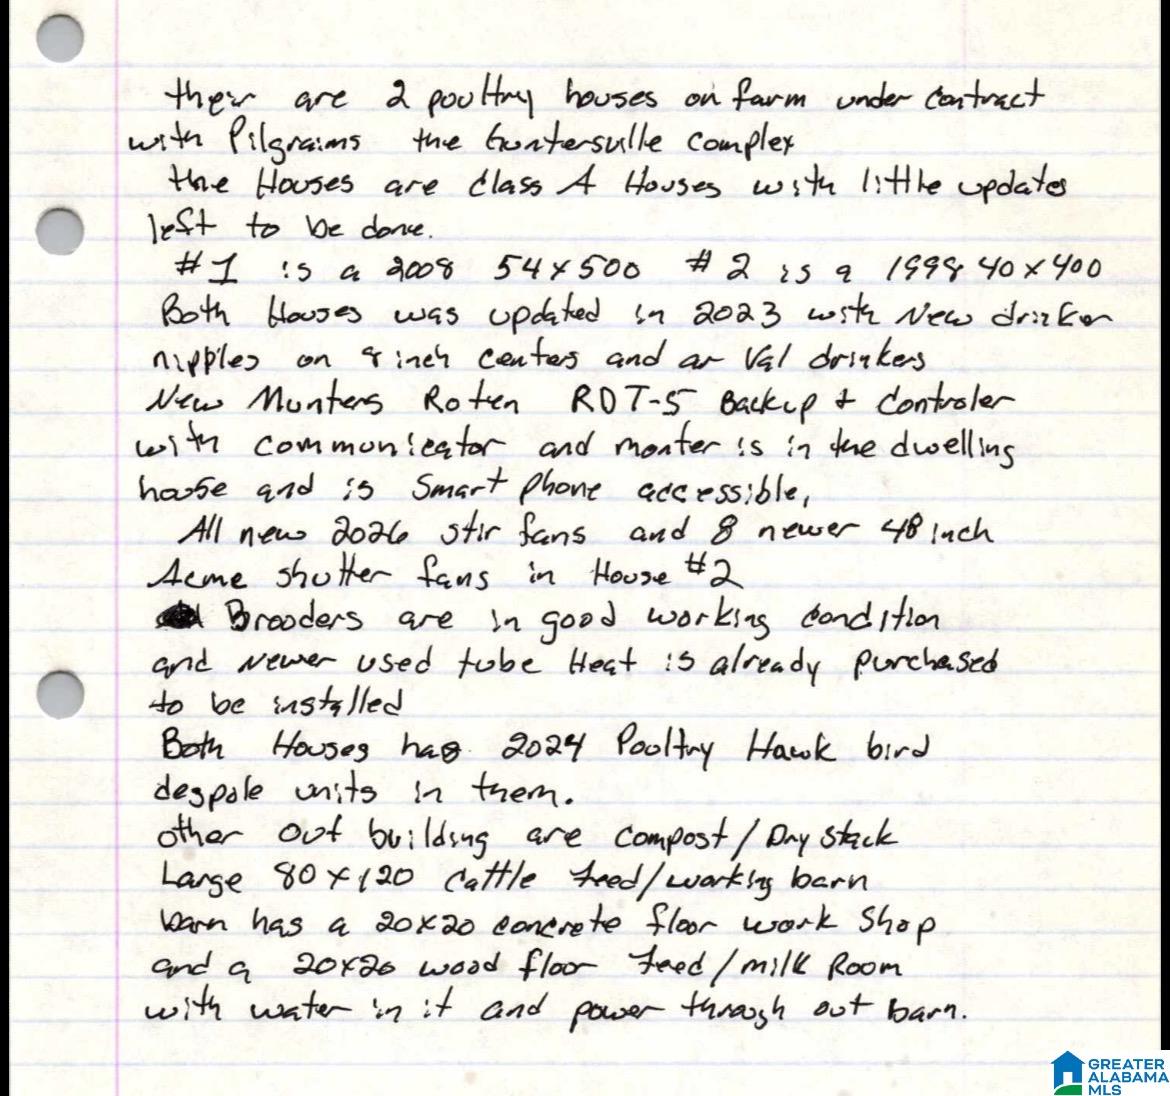 their are 2 poultry houses on farm under contract
with Pilgraims the Guntersville complex
the Houses are Class A Houses with little updates
left to be done.
#1 is a 2008 54x500 #2 is a 1998 40x400
Both Houses was updated in 2023 with New drinker
nipples on 8 inch centers and ar Val drinkers
New Munters Roten RDT-5 Backup + Controler
with communicator and monter is in the dwelling
house and is Smart Phone accessible,
All new 2026 stir fans and 8 newer 48 inch
Acme shutter fans in House #2
Brooders are in good working condition
and Newer used tube Heat is already purchased
to be installed
Both Houses has 2024 Poultry Hawk bird
despale units in them.
other out building are compost/Dry stack
Large 80x120 Cattle feed/working barn
barn has a 20x20 concrete floor work Shop
and a 20x20 wood floor feed/milk Room
with water in it and power through out barn.
GREATER
ALABAMA
MLS